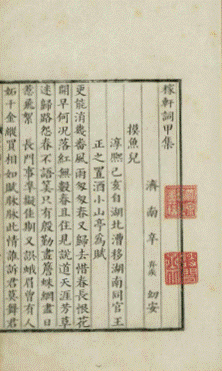 稼軒詞甲集
濟南辛 弃疾 幼安
摸魚兒
淳熙己亥自湖北漕移湖南同官王
正之置酒小山亭爲賦
更能消幾番風雨匆匆春又歸去惜春長恨花
開早何况落紅無數春且住見說道天涯芳草
迷歸路怨春不語筭只有殷勤畫簷蛛網盡日
惹飛絮 長門事準擬佳期又誤蛾眉曾有人
妬千金縱買相如賦脉脉此情誰訴君莫舞君